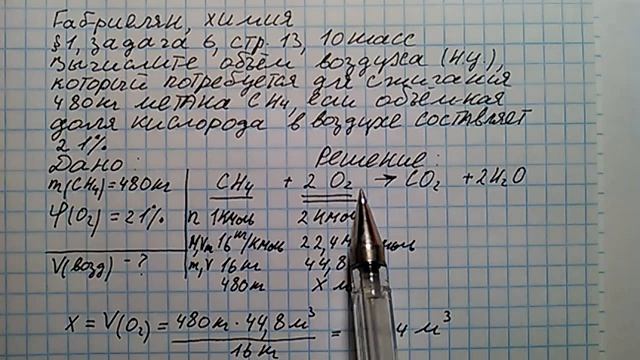 Габриелян, химия
§1, задача 6, стр. 13, 10 класс
Вычислите объём воздуха (н.у.),
который потребуется для сжигания
480 кг метана CH₄, если объёмная
доля кислорода в воздухе составляет
21%.
Дано: Решение:
m(CH₄)=480кг CH₄ + 2 O₂ → CO₂ +2H₂O
φ(O₂) = 21% n 1кмоль 2кмо
M,Vm 16 кг/кмоль 22,4 моль
V(возд) - ? m,V 16кг 44,8
480кг X м
X = V(O₂) = 480кг · 44,8 м³ / 16 кг = 4 м³